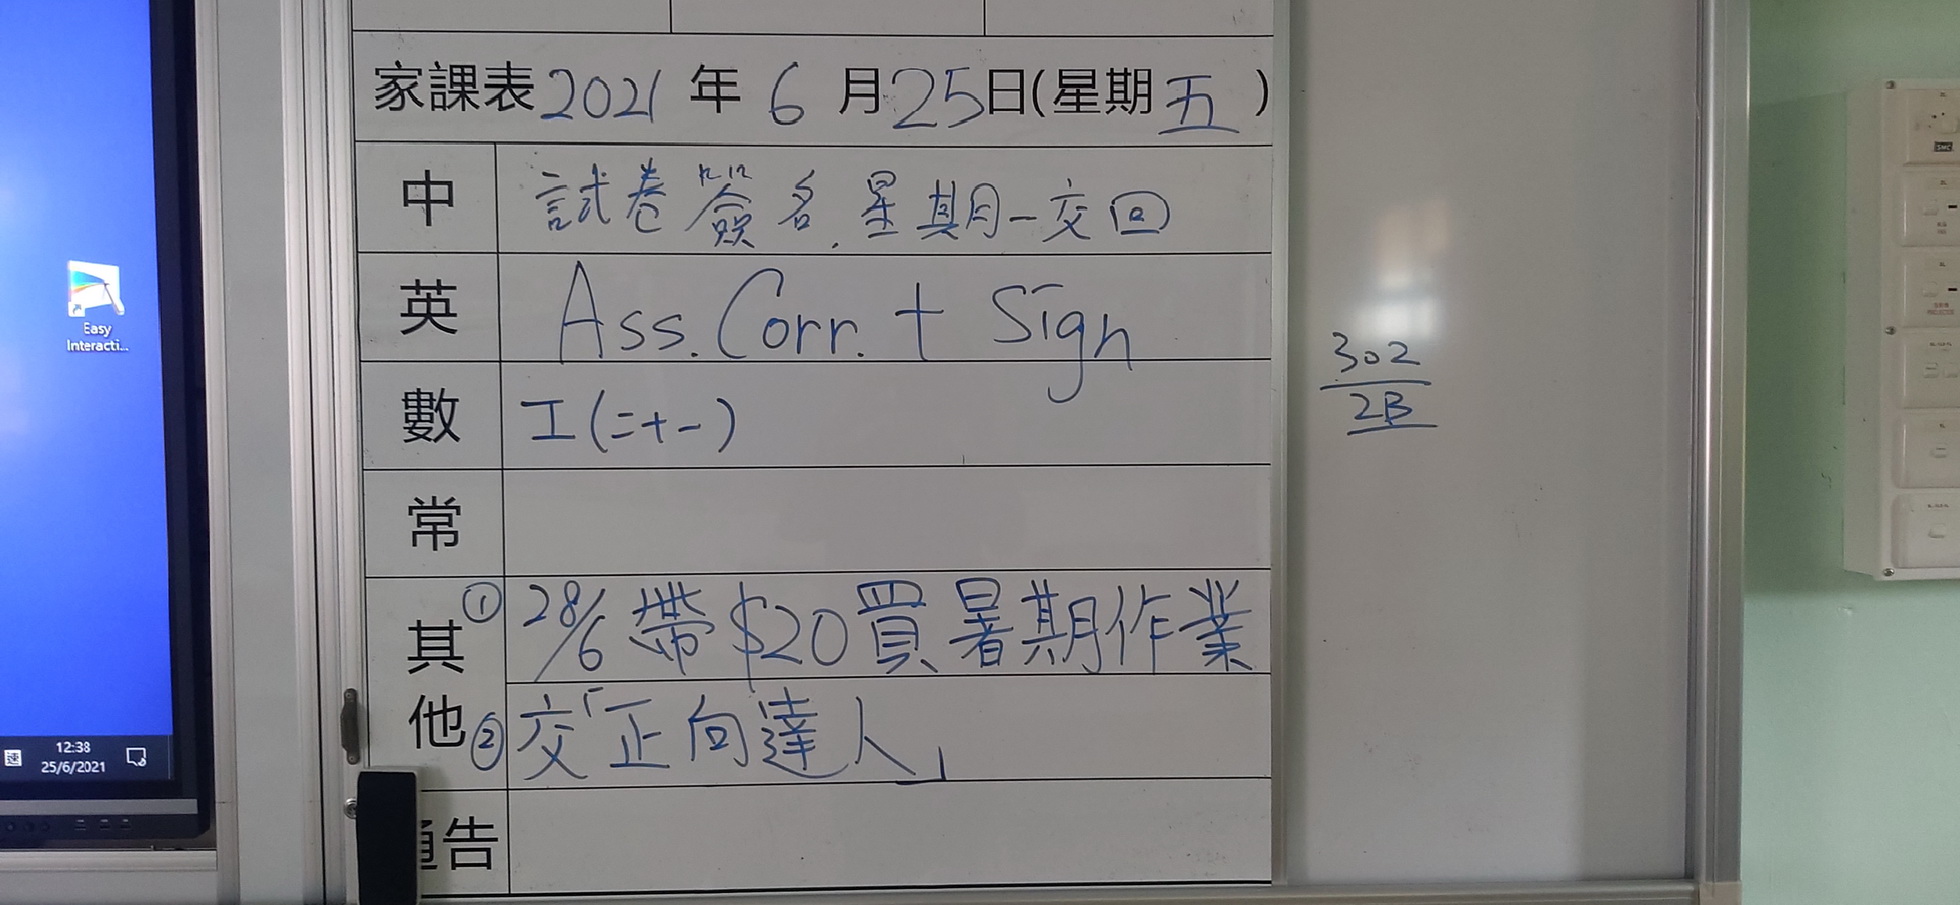 家課表 2021 年 6 月 25 日(星期 五 )
中 試卷簽名,星期一交回
英 Ass. Corr. + Sign
數 工(二+一)
常
其他 ① 28/6 帶$20買暑期作業
② 交「正向達人」
通告
302
2B
Easy
Interacti...
速
12:38
25/6/2021